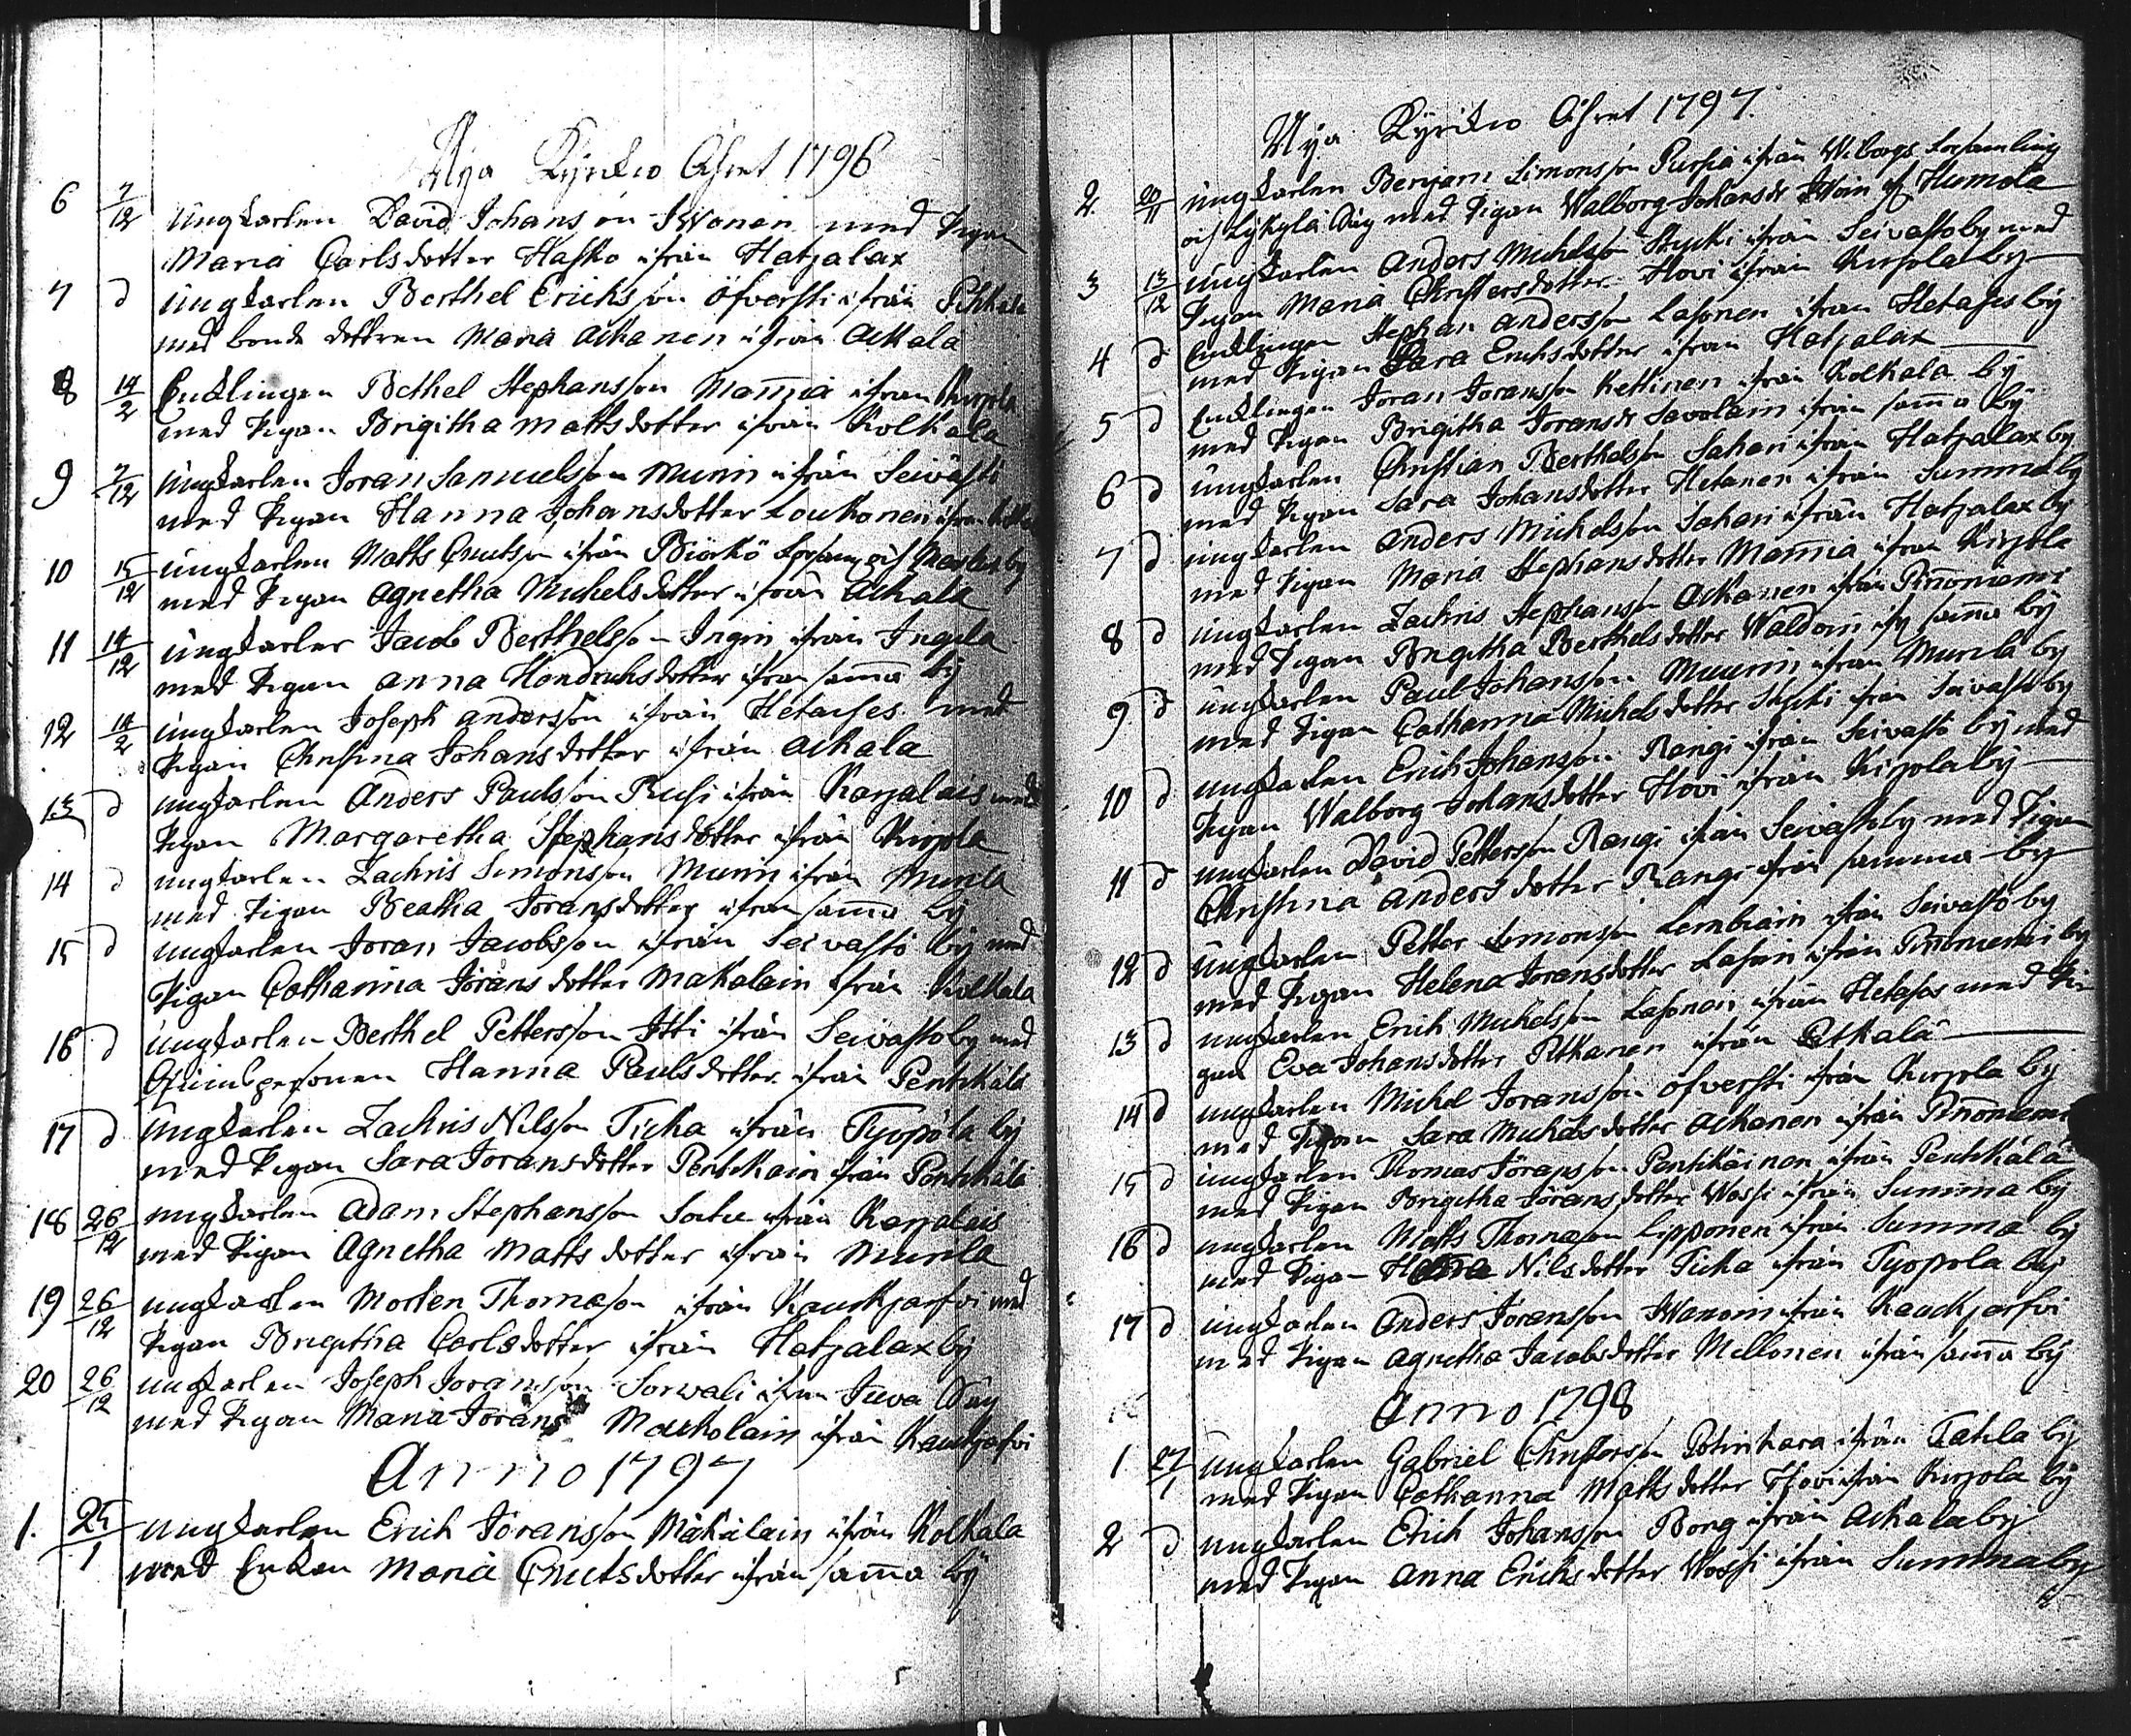 Nya Kyrkio Åhret 1796
6 7/12 Ungkarlen David Johansson Iwonen med Pigan
Maria Carlsdotter Hasko ifrån Hatjalax
7 d Ungkarlen Berthel Erichsson Öfversti ifrån
med bonde dottren Maria Ackanen ifrån Ackala
8 14/2 Encklingen Bethel Stephansson Mam̄ia ifrån Kirjola
med Pigan Brigitha Mattsdotter ifrån Kolkala
9 7/12 Ungkarlen Joran Samuelsson Murin ifrån Seivästö
med Pigan Hanna Johansdotter Loukonen ifrån
10 15/12 Ungkarlen Matts Cnutsson ifrån Biörkö
med Pigan Agnetha Michelsdotter ifrån Ackala
11 14/12 Ungkarlen Jacob Berthelsson Ingin ifrån Ingila
med Pigan Anna Hendrichsdotter ifrån sam̄a by
12 14/2 Ungkarlen Joseph Andersson ifrån Hetaises med
Pigan Christina Johansdotter ifrån Ackala
13 d Ungkarlen Anders Paulsson Rusi ifrån Karjalais med
Pigan Margaretha Stephansdotter ifrån Kirjola
14 d Ungkarlen Zachris Simonsson Murin ifrån Murila
med Pigan Beatha Joransdotter ifrån sam̄a by
15 d Ungkarlen Joran Jacobsson ifrån Seivastö by med
Pigan Catharina Jöransdotter Makalain ifrån Kolkala
16 d Ungkarlen Berthel Pettersson Itti ifrån Seivasto by med
Hanna Paulsdotter ifrån Pentikala
17 d Ungkarlen Zachris Nilsson Ticka ifrån Tyopola by
med Pigan Sara Joransdotter Pentikain ifrån Pentikala
18 26/12 Ungkarlen Adam Stephansson ifrån Karjalais
med Pigan Agnetha Mattsdotter ifrån Murila
19 26/12 Ungkarlen Morten Thomason ifrån Kauckjarfvi med
Pigan Brigitha Carlsdotter ifrån Hatjalax by
20 26/12 Ungkarlen Joseph Joransson Sorwali ifrån Juva
med Pigan Maria Jörans Mackolain ifrån Kauckjarfvi
Anno 1797
1. 25/1 Ungkarlen Erich Jöransson Mäkälain ifrån Kolkala
med Enkan Maria Cnutsdotter ifrån sam̄a by
Nya Kyrkio Åhret 1797.
2. 20/11 Ungkarlen Benjam Simonsson Pursia ifrån Wiborgs Församling
och med Pigan Walborg Johansdr af Humola
3 13/12 Ungkarlen Anders Michelsson Stycki ifrån Seivasto by med
Pigan Maria Christersdotter Hovi ifrån Kirjola by
4 d Encklingen Stephan Andersson Lasonen ifrån Hetases by
med Pigan Sara Erichsdotter ifrån Hatjalax
5 d Encklingen Joran Joransson Kettinen ifrån Kolkala by
med Pigan Brigitha Joransdr Savolain ifrån sam̄a by
6 d Ungkarlen Christian Berthelsson Sahari ifrån Hatjalax by
med Pigan Sara Johansdotter Hetanen ifrån Summa by
7 d Ungkarlen Anders Michelsson Sahari ifrån Hatjalax by
med Pigan Maria Stephansdotter Mam̄ia ifrån Kirjola
8 d Ungkarlen Zachris Stephansson Ackanen ifrån Pinnoniemi
med Pigan Brigitha Berthelsdotter Waldoin af sam̄a by
9 d Ungkarlen Paul Johansson Muurin ifrån Murila by
med Pigan Catharina Michelsdotter Stycki ifrån Seivasto by
10 d Ungkarlen Erich Johansson Rangi ifrån Seivastö by med
Pigan Walborg Johansdotter Hovi ifrån Kirjola by
11 d Ungkarlen David Pettersson Rangi ifrån Seivastoby med Pigan
Christina Andersdotter Rangi ifrån samma by
12 d Ungkarlen Petter Simonsson Lembiäin ifrån Seivastö by
med Pigan Helena Joransdotter Lasoin ifrån Pinnoniemi by
13 d Ungkarlen Erich Michelsson Lasonen ifrån Hetases med Pi-
gan Eva Johansdotter Petkanen ifrån
14 d Ungkarlen Michel Joransson öfversti ifrån Kirjola by
med Pigan Sara Michelsdotter Ackanen ifrån Pinnoniemi
15 d Ungkarlen Thomas Jöransson Pentikäinen ifrån Pentikälä
med Pigan Brigitha Jöransdotter Wossi ifrån Summa by
16 d Ungkarlen Matts Thomason Lipponen ifrån Summa by
med Pigan Nilsdotter Ticka ifrån Tyopola by
17 d Ungkarlen Anders Joransson Iwanoin ifrån Kauckjarfvi
med Pigan Agnetha Jacobsdotter Mellonen ifrån sam̄a by
Anno 1798
1 27/1 Ungkarlen Gabriel Christersson Potinkara ifrån Tatila by
med Pigan Catharina Mattsdotter Hovi ifrån Kirjola by
2 d Ungkarlen Erich Johansson Borg ifrån Ackala by
med Pigan Anna Erichsdotter Wossi ifrån Summa by